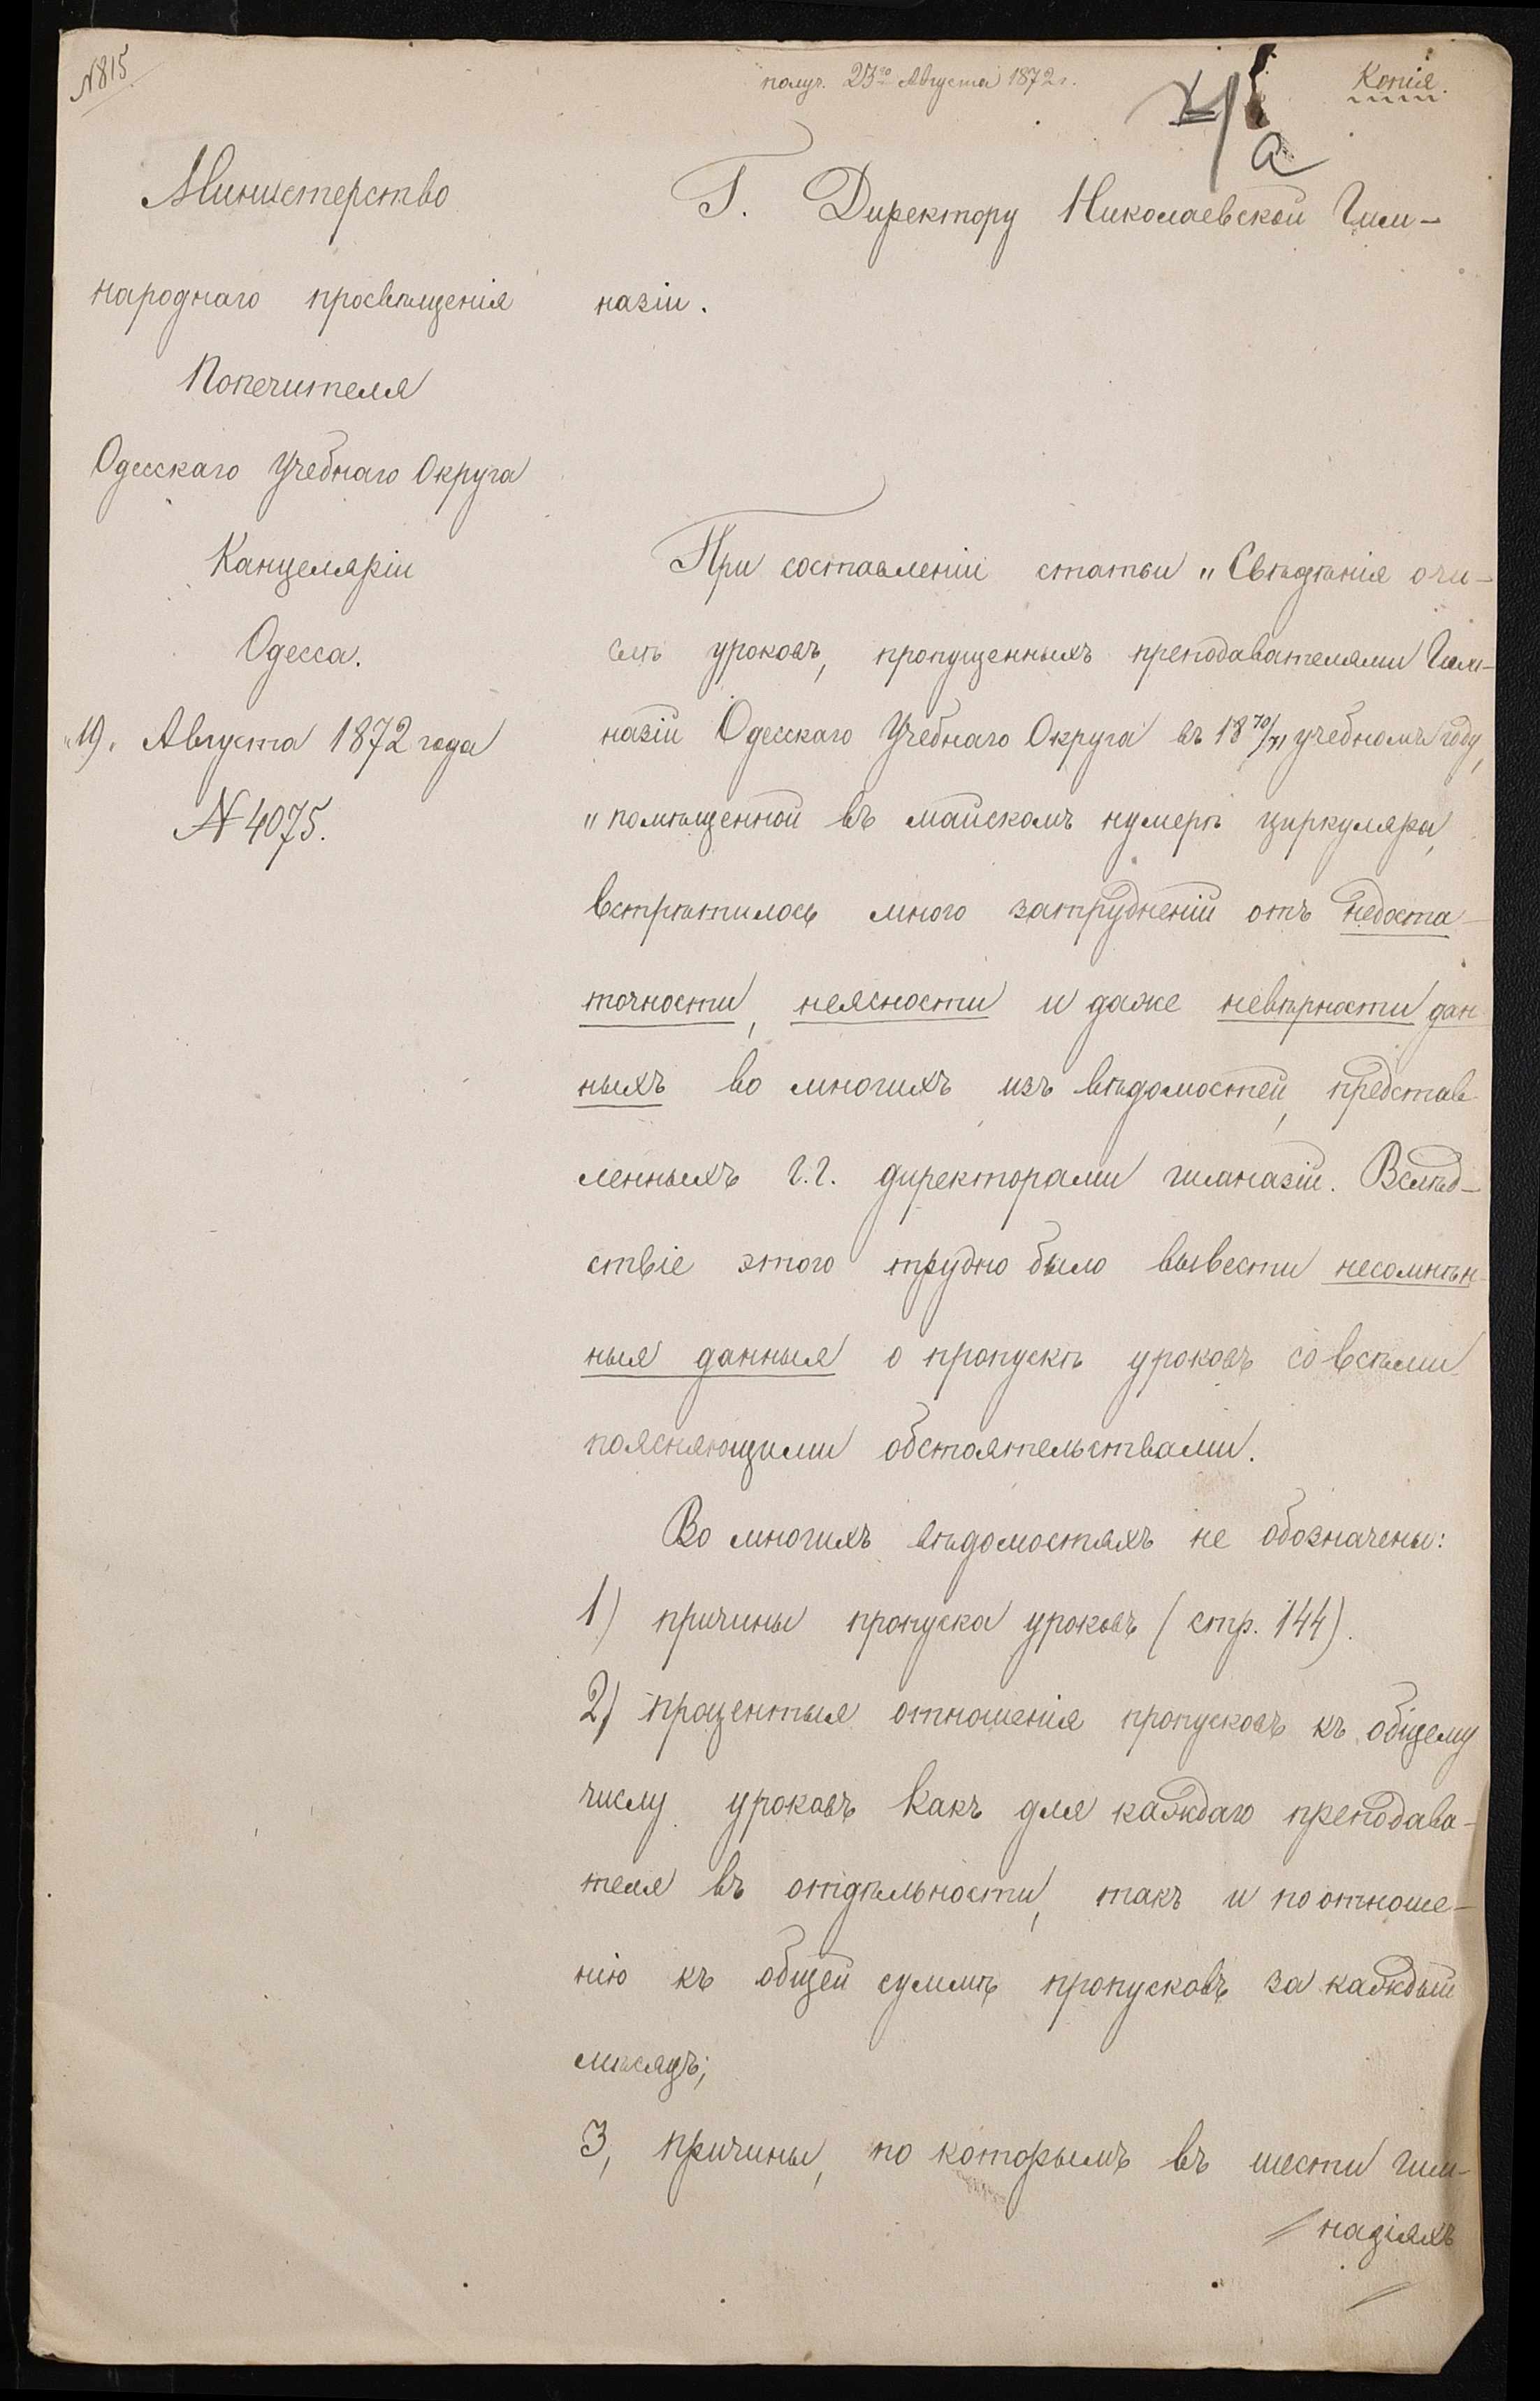 №815
получ. 23го Августа 1872 г.
Копія.
Министерство
народнаго просвѣщенія
Попечителя
Одесскаго Учебнаго Округа
Канцеляріи
Одесса.
„19„ Августа 1872 года
№ 4075.
Г. Директору Николаевской Гим-
назіи.
При составленіи статьи „Свѣдѣнія о чи-
слѣ уроковъ, пропущенныхъ преподавателями Гим-
назій Одесскаго Учебнаго Округа въ 18 70/71 учебномъ году,
„помѣщенной въ майскомъ нумерѣ циркуляра,
встрѣтилось много затрудненій отъ недоста-
точности, неясности и даже невѣрности дан
ныхъ во многихъ изъ вѣдомостей, представ
ленныхъ г.г. директорами гимназій. Вслѣд-
ствіе этого трудно было вывести несомнѣн-
ныя данныя о пропускѣ уроковъ со всѣми
поясняющими обстоятельствами.
Во многихъ вѣдомостяхъ не обозначены:
1) причины пропуска уроковъ (стр. 144).
2) процентныя отношенія пропусковъ къ общему
числу уроковъ какъ для каждаго преподава-
теля въ отдѣльности, такъ и по отноше-
нію къ общей суммѣ пропусковъ за каждый
мѣсяцъ;
3, причины, по которымъ въ шести гим-
назіяхъ